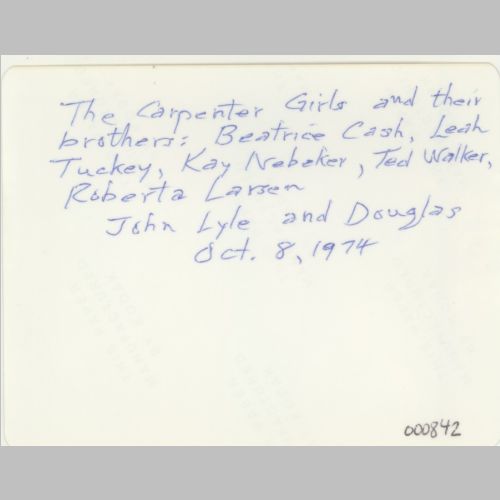 The Carpenter Girls and their
brothers: Beatrice Cash, Leah
Tuckey, Kay Nebeker, Ted Walker,
Roberta Larsen
John Lyle and Douglas
Oct. 8, 1974
000842